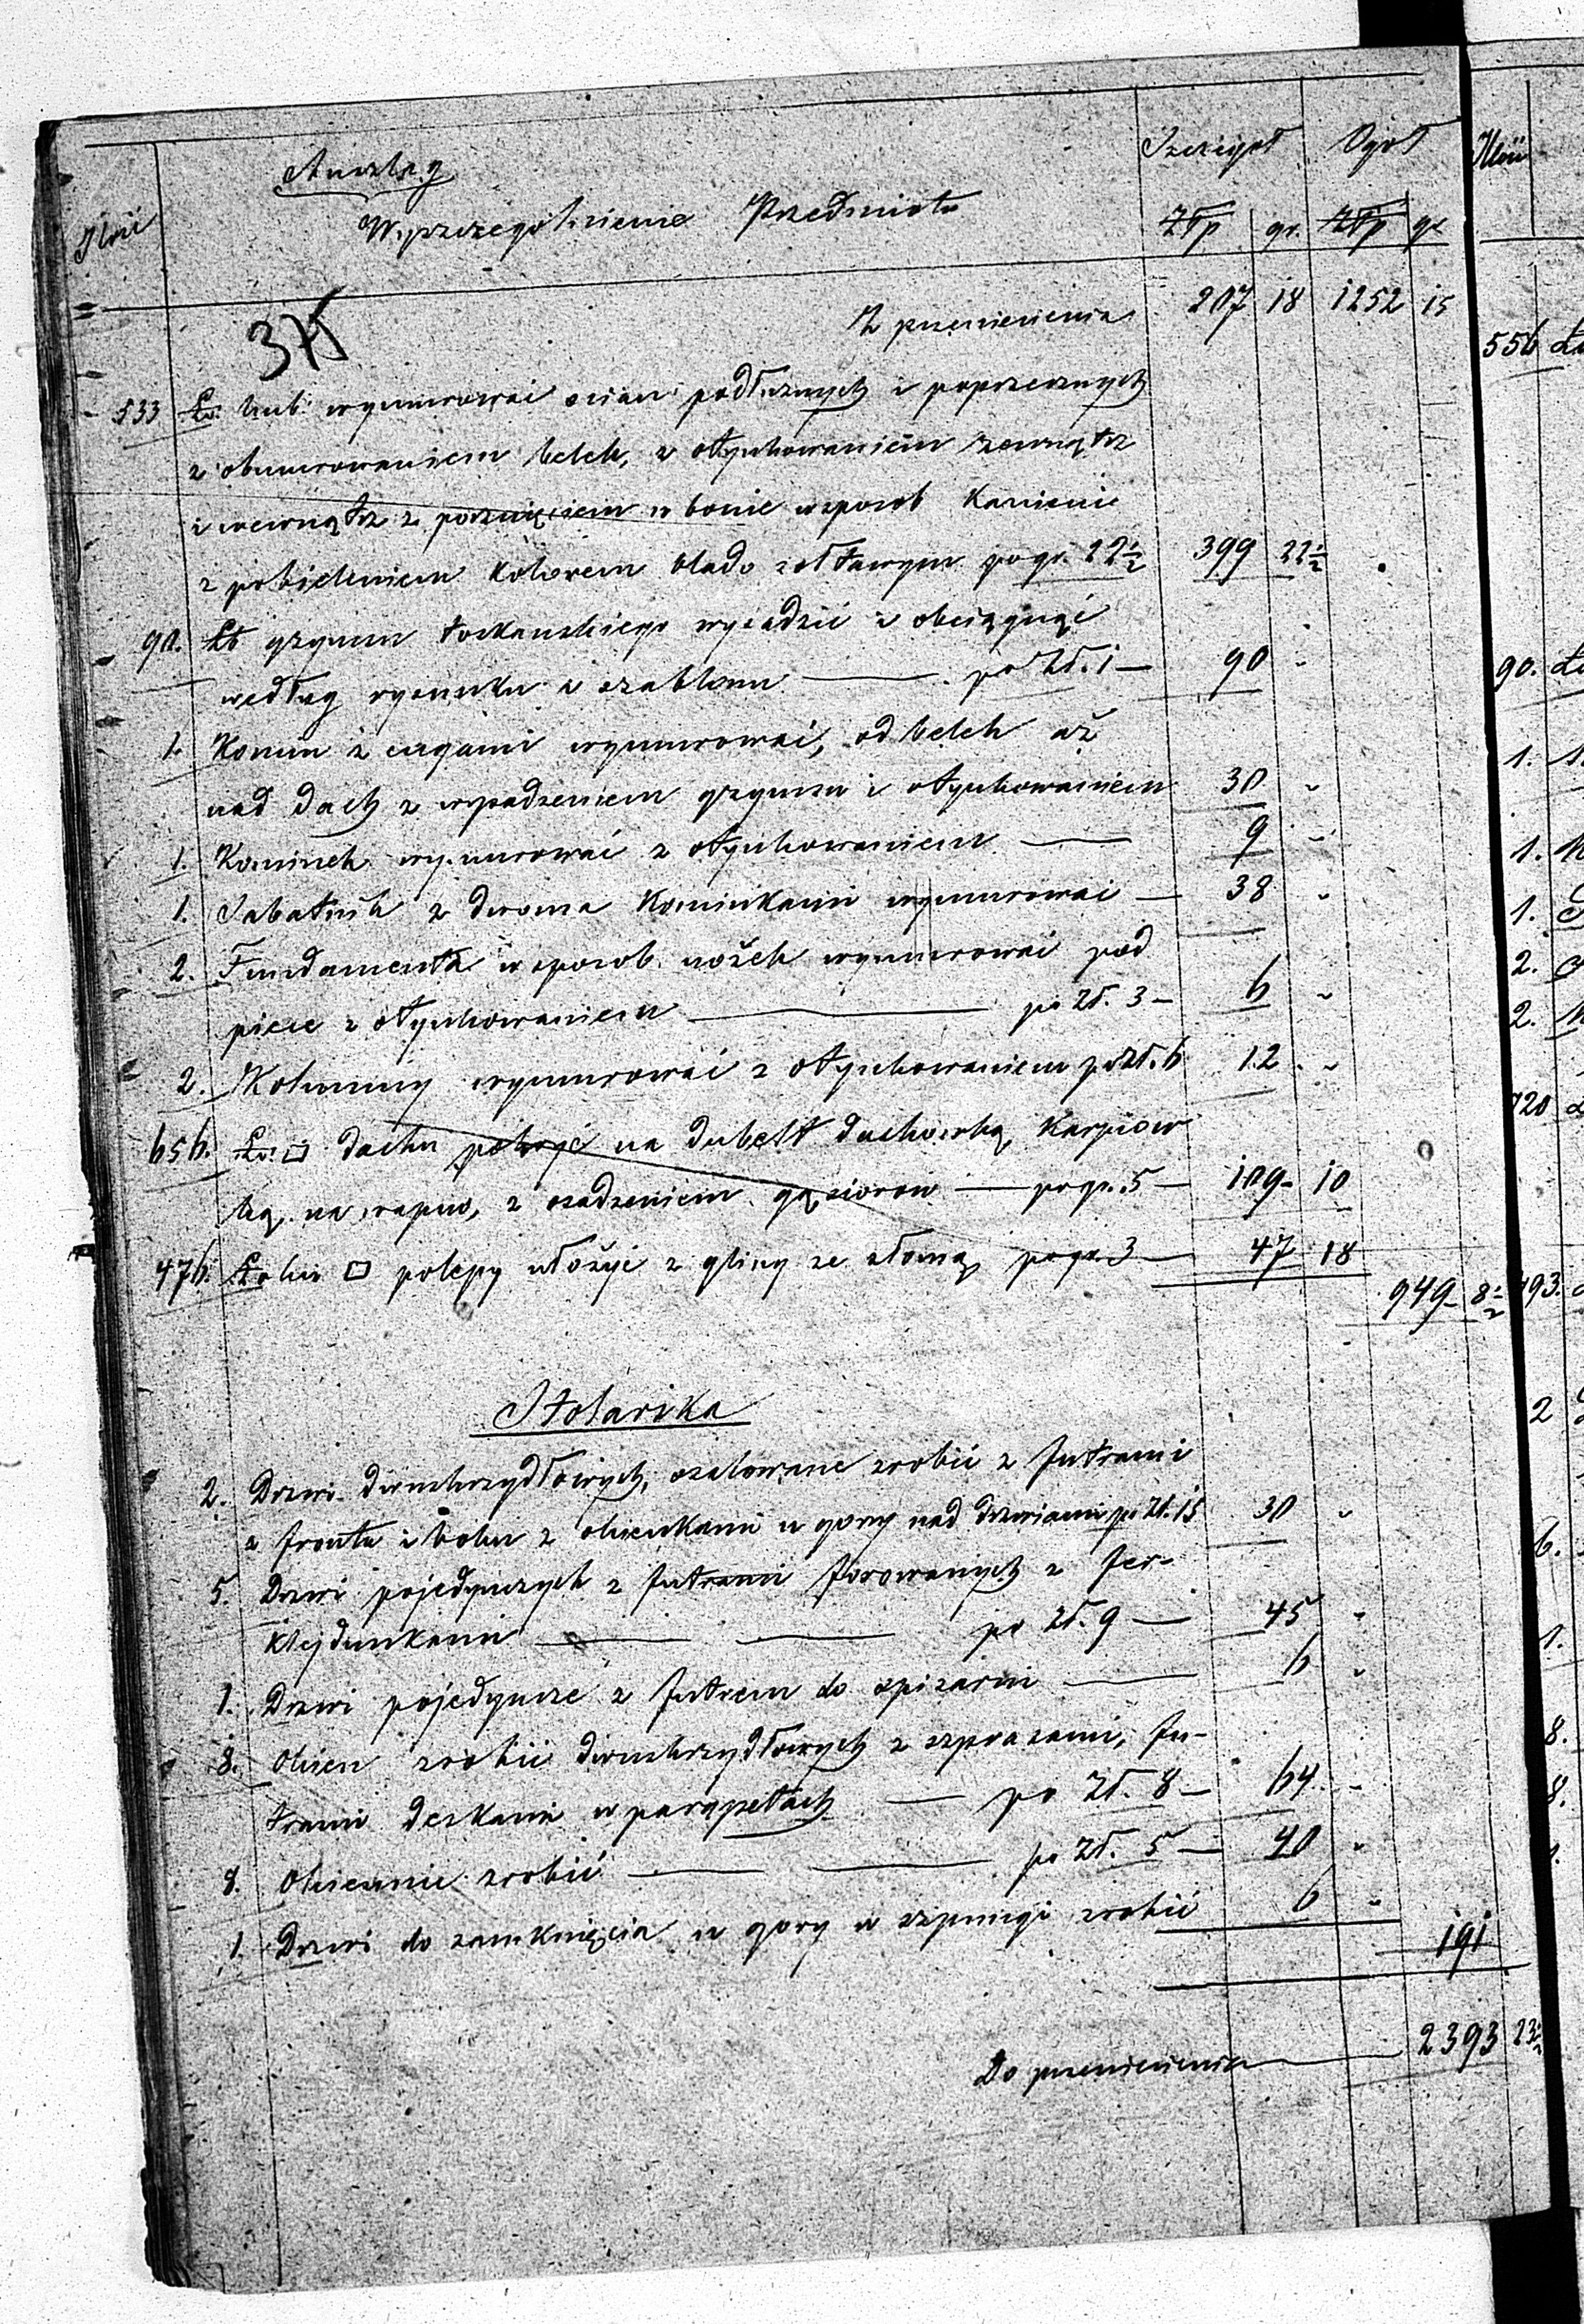 Anszlag
Ilość Wyszczególnienie Przedmiotu Szczegoł Ogoł
ZŁp gr. ZŁp gr
375 Z przeniesienia 207 18 1252 15
533 Ło: kub: wymurować scian podłużnych i poprzecznych
z obmurowaniem belek, z otynkowaniem zewnątrz
i wewnątrz z porznięciem w bonie wsposob Kamieni
z pobieleniem kolorem blado żołtawym po gr. 22½ 399 22½
90. Łō gzymsu toskańskiego wysadzić i obciągnąć
według rysunku i szablonu — po Zł. 1 — 90 "
1. Komin z cugami wymurować, od belek aż
nad dach z wysadzeniem gzymsu i otynkowaniem 30 "
1. Kominek wymurować z otynkowaniem — 9 "
1. Sabatnik z dwoma Kominkami wymurować — 38 "
2. Fundamenta w sposob nóżek wymurować pod
piece z otynkowaniem — po Zł. 3 — 6 "
2. Kolumny wymurować z otynkowaniem po Zł. 6 12 "
656. Ło: □ dachu pokryć na dubelt dachowką, Karpiow
ką, na wapno, z osadzeniem gąsiorow — po gr. 5 — 109 10
476. Łokci □ polepy ułożyć z gliny ze słomą po gr. 3 — 47 18
949 8½
Stolarska
2. Drzwi dwuskrzydłowych, szalowane zrobić z futrami
z frontu i boku z okienkami u gory nad drzwiami po Zł. 15 30 "
5. Drzwi pojedynczych z futrami forowanych z fer-
klejdunkami — — po Zł. 9 — 45 "
1. Drzwi pojedyncze z futrem do spiżarni — 6 "
8. Okien zrobić dwuskrzydłowych z szprosami, fu-
trami deskami w parapetach — po Zł. 8 — 64 "
8. Okiennic zrobić — — po Zł. 5 — 40 "
1. Drzwi do zamknięcia u gory w szpungi zrobić 6 "
191
Do przeniesienia — 2393 23½